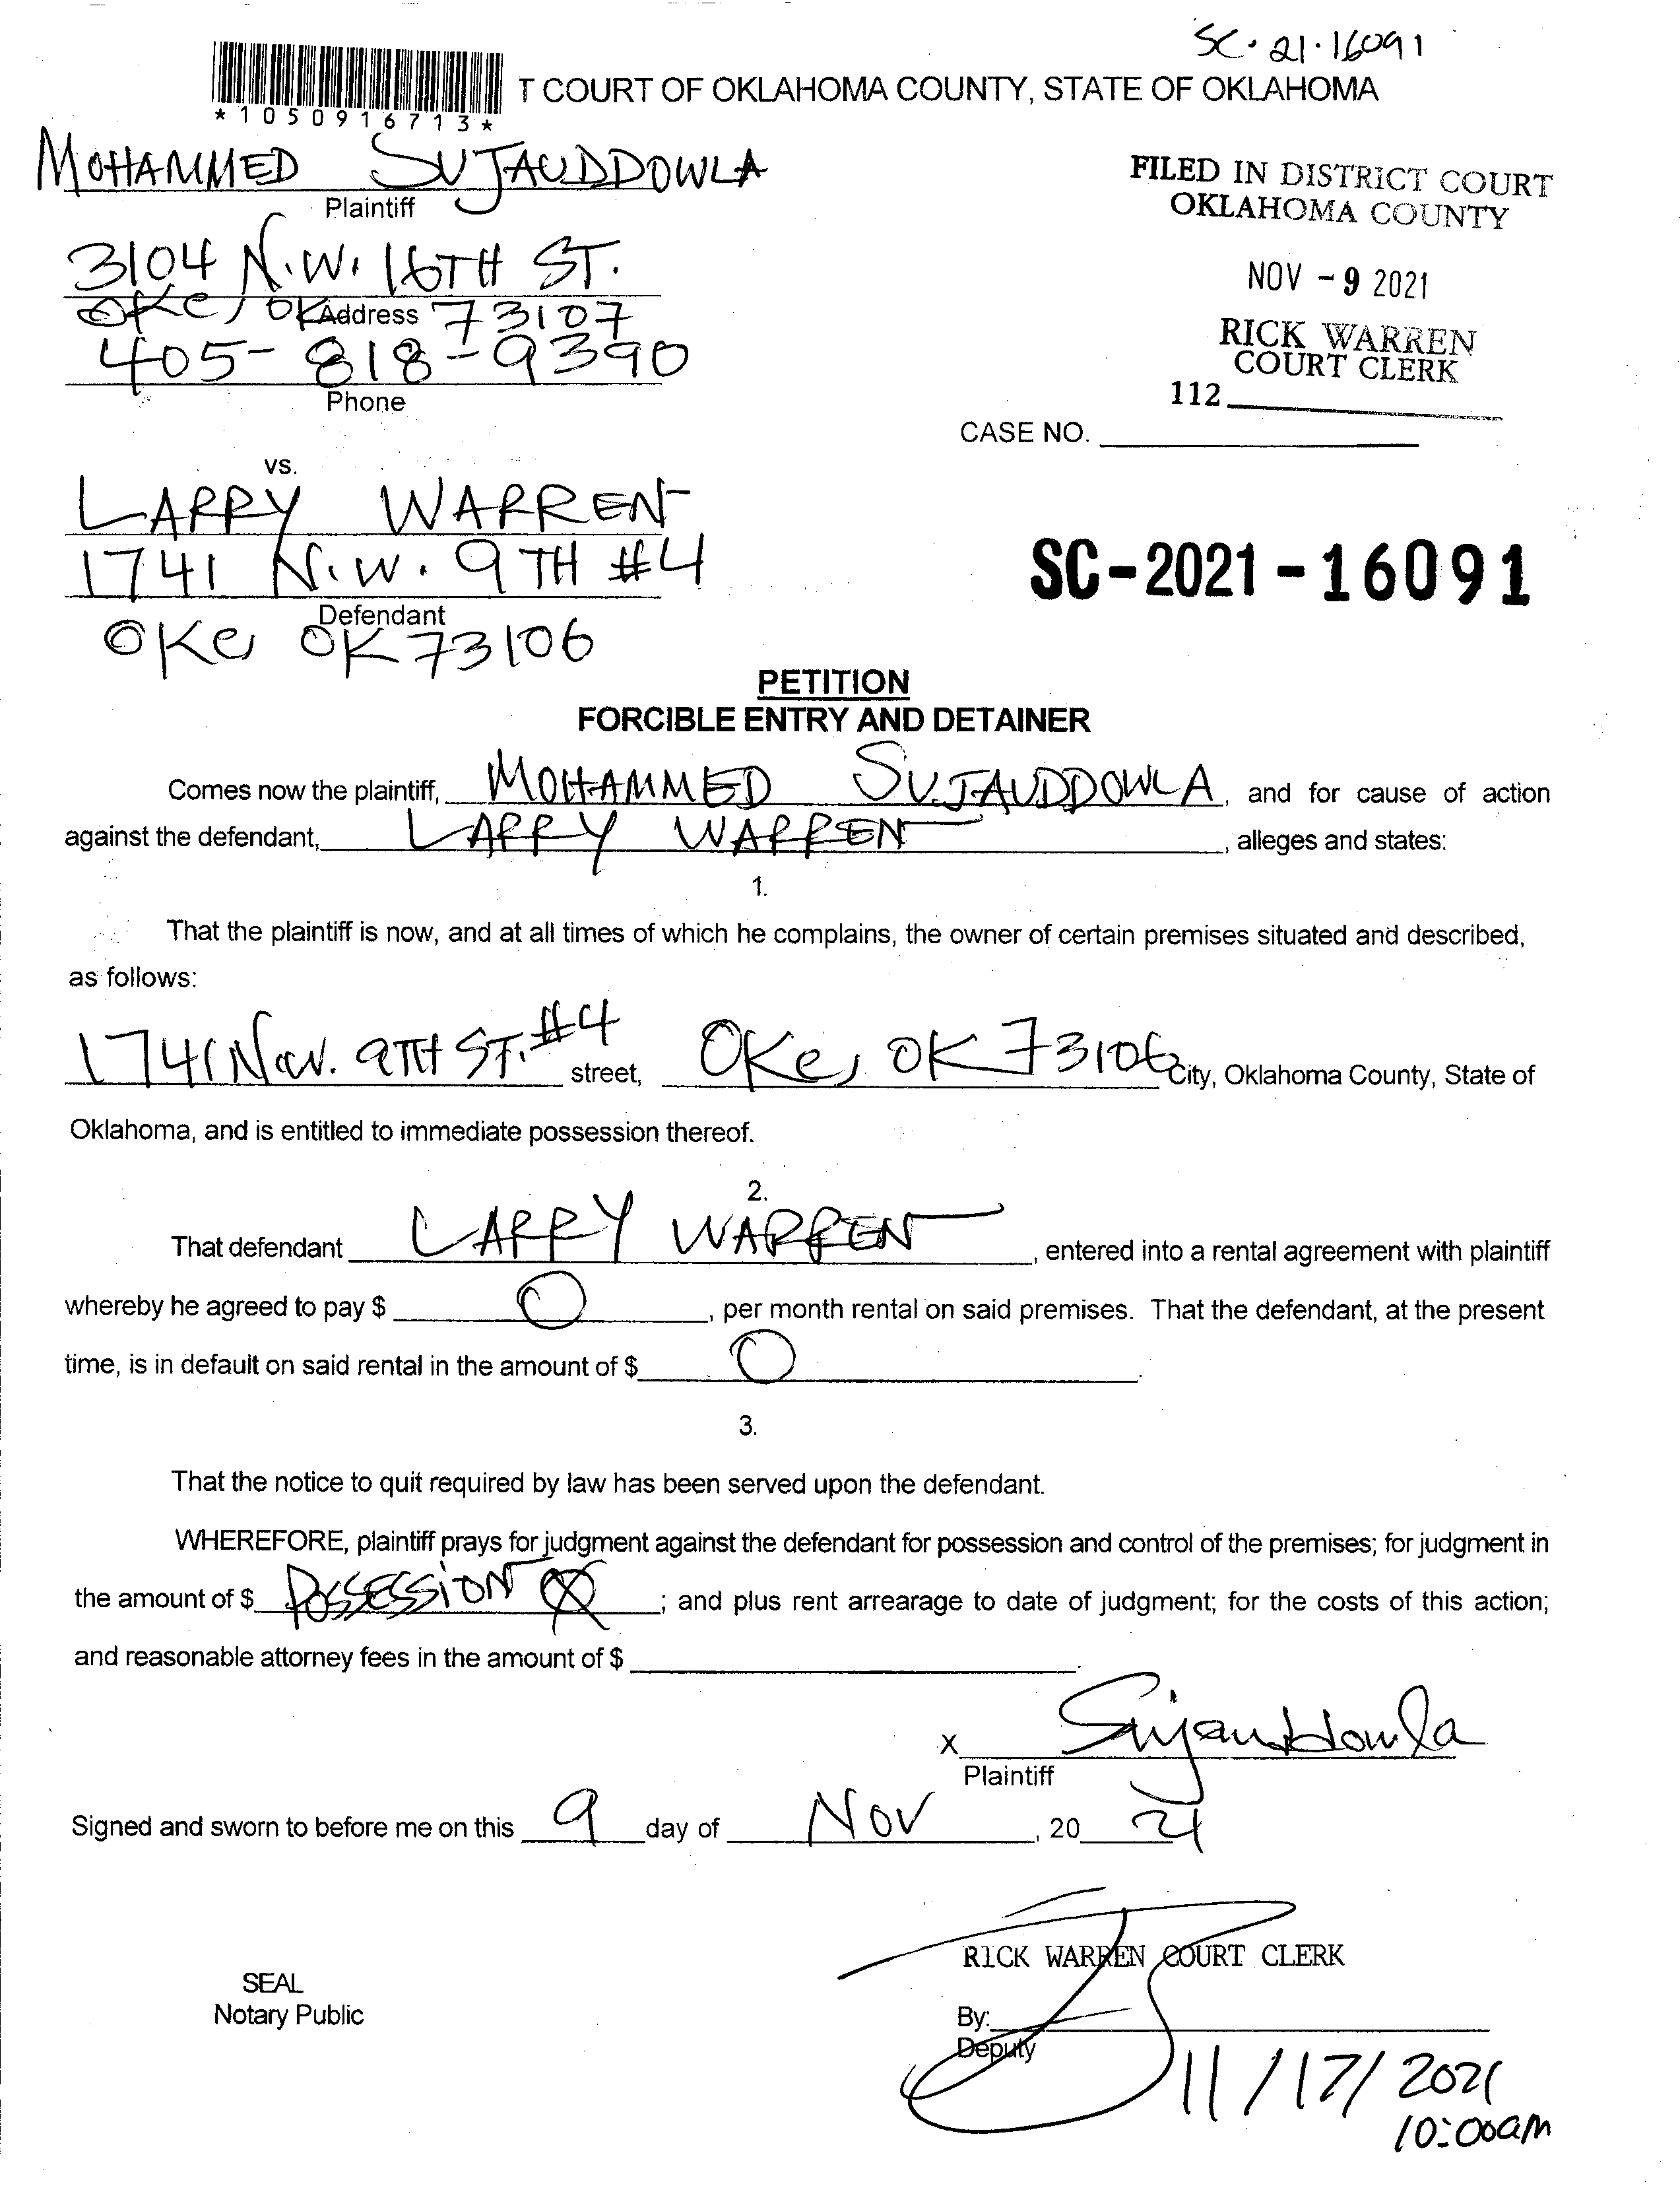 SC-21-16091
T COURT OF OKLAHOMA COUNTY, STATE OF OKLAHOMA
*1050916713*
MOHAMMED SUJAUDDOWLA
Plaintiff
FILED IN DISTRICT COURT
OKLAHOMA COUNTY
3104 N.W. 16TH ST.
OKC, OK 73107
Address
NOV - 9 2021
405-818-9390
Phone
RICK WARREN
COURT CLERK
112
CASE NO.
vs.
LARRY WARREN
1741 N.W. 9TH #4
Defendant
OKC, OK 73106
SC-2021-16091
PETITION
FORCIBLE ENTRY AND DETAINER
Comes now the plaintiff, MOHAMMED SUJAUDDOWLA, and for cause of action
against the defendant, LARRY WARREN, alleges and states:
1.
That the plaintiff is now, and at all times of which he complains, the owner of certain premises situated and described,
as follows:
1741 N.W. 9TH ST. #4 street, OKC, OK 73106 City, Oklahoma County, State of
Oklahoma, and is entitled to immediate possession thereof.
2.
That defendant LARRY WARREN, entered into a rental agreement with plaintiff
whereby he agreed to pay $ 0, per month rental on said premises. That the defendant, at the present
time, is in default on said rental in the amount of $ 0.
3.
That the notice to quit required by law has been served upon the defendant.
WHEREFORE, plaintiff prays for judgment against the defendant for possession and control of the premises; for judgment in
the amount of $ POSSESSION; and plus rent arrearage to date of judgment; for the costs of this action;
and reasonable attorney fees in the amount of $ .
X Sujauddowla
Plaintiff
Signed and sworn to before me on this 9 day of Nov, 20 21
RICK WARREN COURT CLERK
SEAL
Notary Public
By:
Deputy
11/17/2021
10:00am